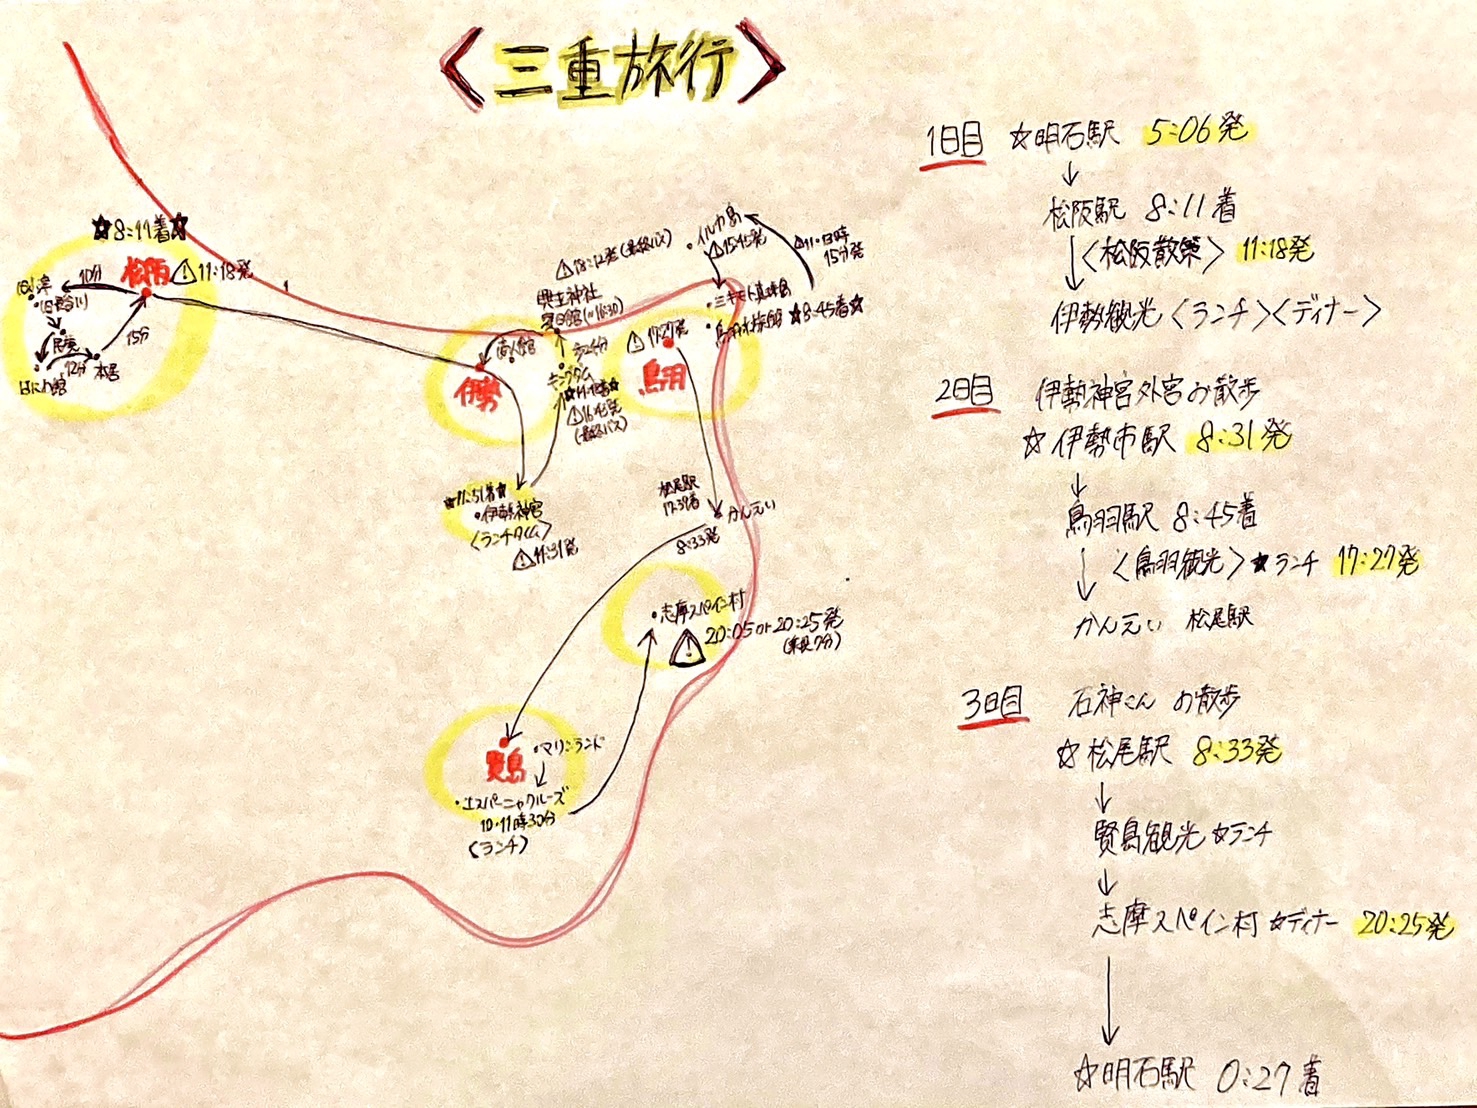 〈三重旅行〉
☆8:11着☆
松阪
⚠11:18発
10分
15分
12分
本居
はにわ館
⚠18:12発(最終バス)
興玉神社
賓日館(~16:30)
伊勢
キングダム
⚠16:45発
(最終バス)
☆11:51着☆
・伊勢神宮
〈ランチタイム〉
⚠11:31発
・イルカ島
⚠15:45発
⚠11・13時
15分発
・ミキモト真珠島
・鳥羽水族館 ☆8:45着☆
⚠17:27発
鳥羽
松尾駅
17:39着
かんえい
8:33発
・志摩スペイン村
⚠20:05 or 20:25発
賢島
・マリンランド
・エスパーニャクルーズ
10・11時30分
〈ランチ〉
1日目 ☆明石駅 5:06発
↓
松阪駅 8:11着
↓〈松阪散策〉 11:18発
伊勢観光〈ランチ〉〈ディナー〉
2日目 伊勢神宮外宮の散歩
☆伊勢市駅 8:31発
↓
鳥羽駅 8:45着
↓〈鳥羽観光〉★ランチ 17:27発
かんえい 松尾駅
3日目 石神さんの散歩
☆松尾駅 8:33発
↓
賢島観光 ☆ランチ
↓
志摩スペイン村 ☆ディナー 20:25発
↓
☆明石駅 0:27着